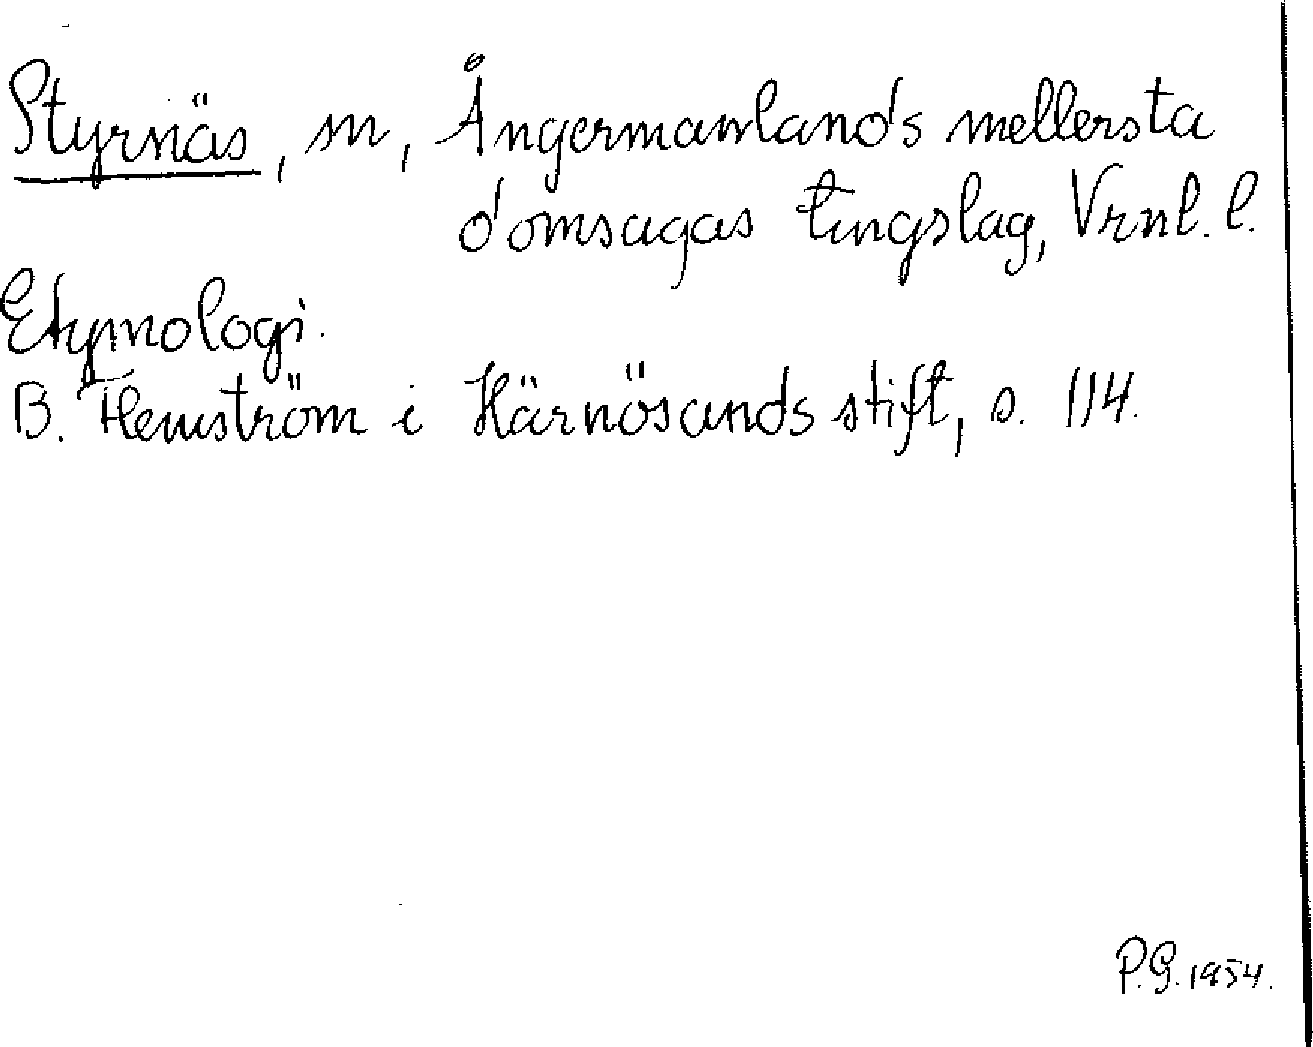 Styrnäs, sn, Ångermanlands mellersta
domsagas tingslag, Vrnl. l.
Etymologi.
B. Hemström i Härnösands stift, s. 114.
P.G. 1954.